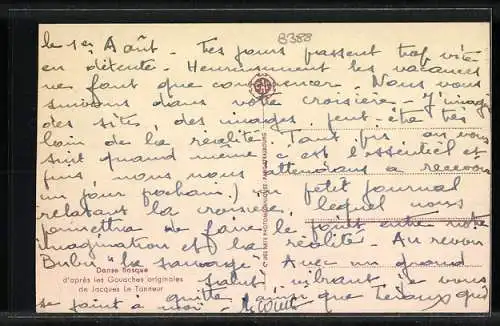 8388
le 1er Août - Tres jours passent trop vite
en détente - Heureusement les vacances
ne font que commencer - Nous vous
suivons dans votre croisière - J'imagine
des sites, des images, peut-être très
loin de la réalité. Tant pis on vous
suit quand même, c'est l'essentiel et
puis, nous nous attendons à recevoir
un jour prochain) un petit journal
relatant la croisière, lequel nous
permettra de faire le joint entre notre
imagination et la réalité. Au revoir
Bubu "Le sauvage". Avec un grand
salut, vibrant je vous
quitte car que
se joint à moi -
Danse Basque
d'après les Gouaches originales
de Jacques Le Tanneur